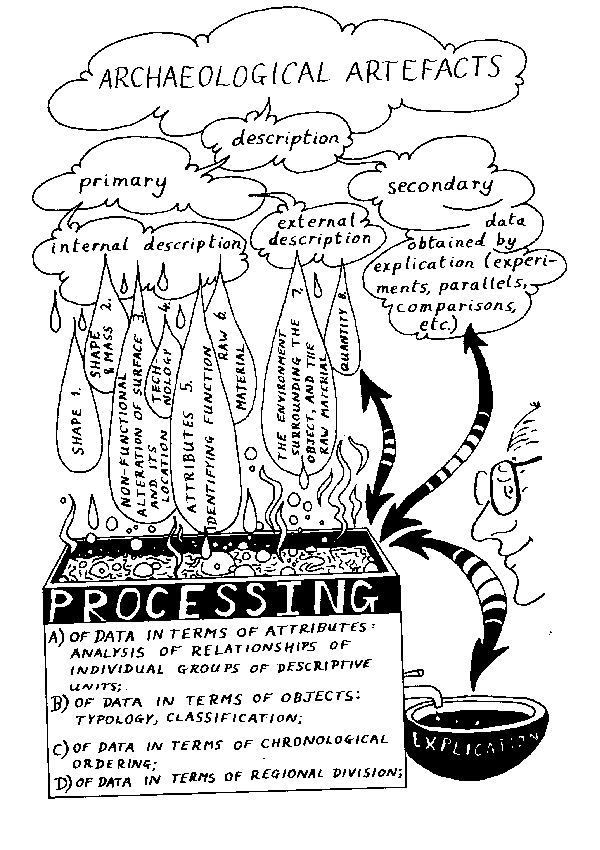 ARCHAEOLOGICAL ARTEFACTS
description
primary
secondary
internal description
external
description
data
obtained by
explication (experi-
ments, parallels,
comparisons,
etc.)
SHAPE 1.
SHAPE 2.
& MASS
NON-FUNCTIONAL 3.
ALTERATION OF SURFACE
AND ITS
LOCATION
TECH- 4.
NOLOGY
ATTRIBUTES 5.
IDENTIFYING FUNCTION
RAW 6.
MATERIAL
THE ENVIRONMENT 7.
SURROUNDING THE
OBJECT, AND THE
RAW MATERIAL
QUANTITY 8.
PROCESSING
A) OF DATA IN TERMS OF ATTRIBUTES:
ANALYSIS OF RELATIONSHIPS OF
INDIVIDUAL GROUPS OF DESCRIPTIVE
UNITS;
B) OF DATA IN TERMS OF OBJECTS:
TYPOLOGY, CLASSIFICATION;
C) OF DATA IN TERMS OF CHRONOLOGICAL
ORDERING;
D) OF DATA IN TERMS OF REGIONAL DIVISION;
EXPLICATION